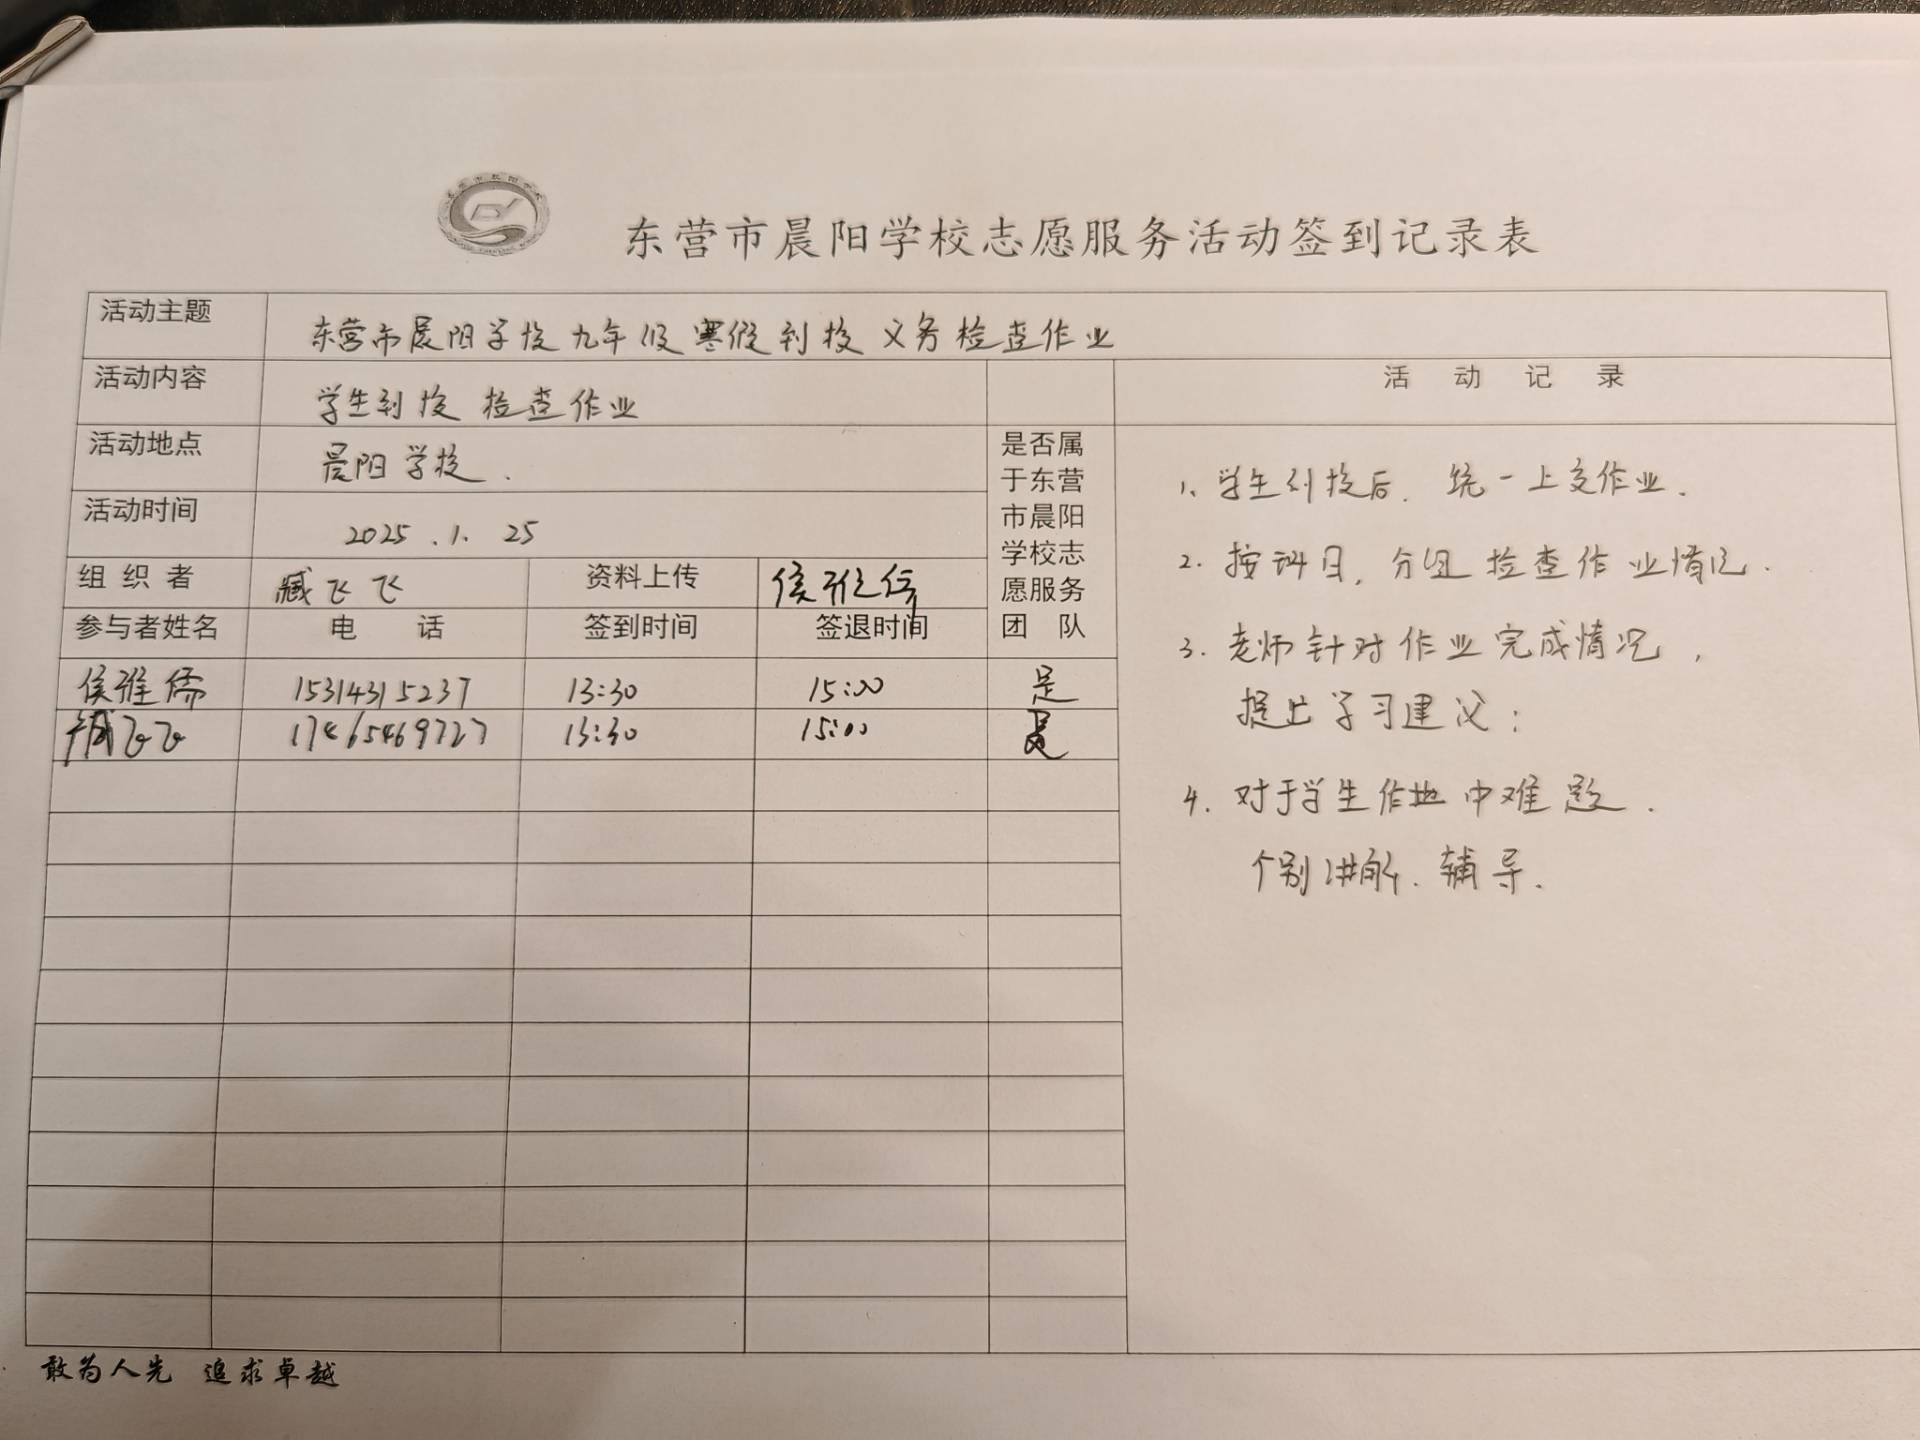 东营市晨阳学校志愿服务活动签到记录表
活动主题 东营市晨阳学校九年级寒假到校义务检查作业
活动内容 学生到校检查作业
活动记录
活动地点 晨阳学校.
活动时间 2025.1.25
是否属
于东营
市晨阳
学校志
愿服务
团 队
组织者 臧飞飞 资料上传
参与者姓名 电 话 签到时间 签退时间
侯雅儒 15314315237 13:30 15:00 是
臧飞飞 17465469727 13:30 15:00 是
1. 学生到校后. 统一上交作业.
2. 按科目, 分组检查作业情况.
3. 老师针对作业完成情况,
提出学习建议;
4. 对于学生作业中难题.
个别讲解. 辅导.
敢为人先 追求卓越